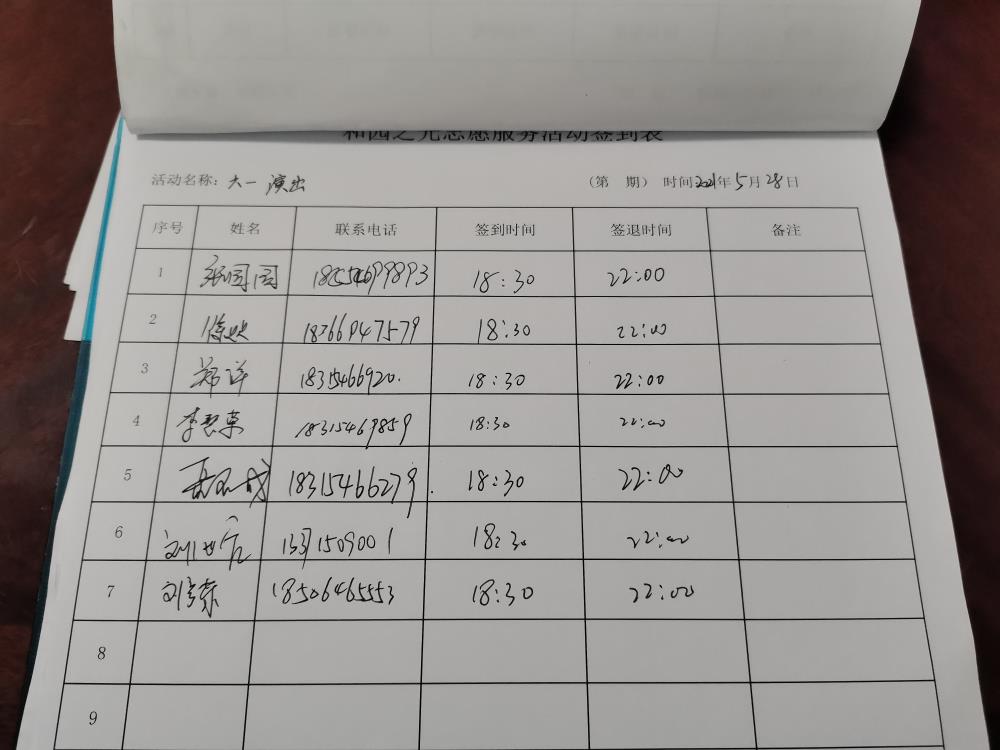 和园之光志愿服务活动签到表
活动名称: 大一演出 (第 期) 时间2021年5月28日
序号 姓名 联系电话 签到时间 签退时间 备注
1 张园园 18:30 22:00
2 18766947579 18:30 22:00
3 郑洋 18315466920. 18:30 22:00
4 李慧荣 18315469859 18:30 22:00
5 18315466279. 18:30 22:00
6 13371509001 18:30 22:00
7 18506465553 18:30 22:00
8
9